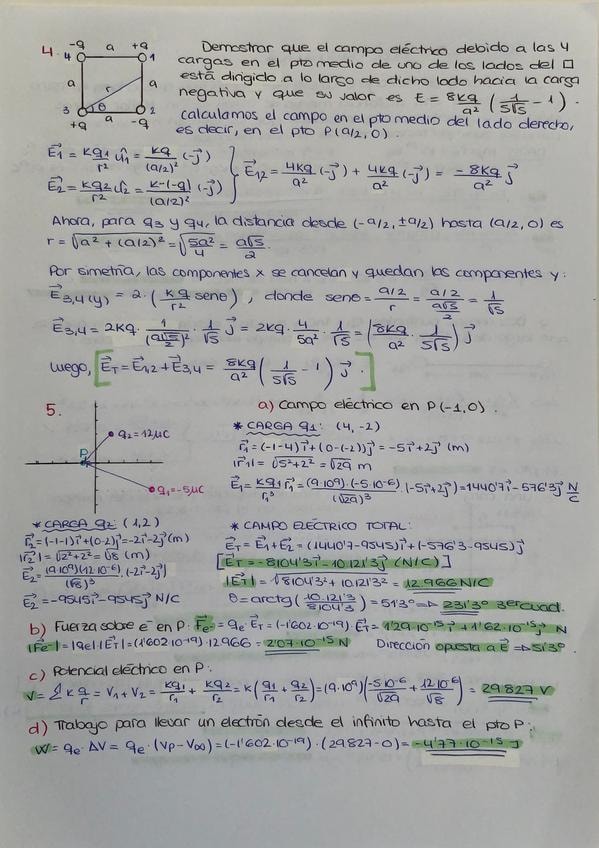 4. -q a +q
4 1
a r a
3 θ 2
+q a -q
Demostrar que el campo eléctrico debido a las 4
cargas en el pto medio de uno de los lados del □
está dirigido a lo largo de dicho lado hacia la carga
negativa y que su valor es E = 8kq/a² (1/5√5 - 1).
Calculamos el campo en el pto medio del lado derecho,
es decir, en el pto P(a/2, 0).
E⃗1 = kq1/r² û1 = kq/(a/2)² (-j⃗)
E⃗2 = kq2/r² û2 = k·(-q)/(a/2)² (-j⃗)
} E⃗1,2 = 4kq/a² (-j⃗) + 4kq/a² (-j⃗) = -8kq/a² j⃗
Ahora, para q3 y q4, la distancia desde (-a/2, ±a/2) hasta (a/2, 0) es
r = √a² + (a/2)² = √5a²/4 = a√5/2.
Por simetría, las componentes x se cancelan y quedan las componentes y:
E⃗3,4(y) = 2·(kq/r² senθ), donde senθ = a/2/r = a/2/a√5/2 = 1/√5
E⃗3,4 = 2kq· 1/(a√5/2)² · 1/√5 j⃗ = 2kq· 4/5a² · 1/√5 = (8kq/a² · 1/5√5) j⃗
Luego, [E⃗T = E⃗1,2 + E⃗3,4 = 8kq/a² (1/5√5 - 1) j⃗.]
5.
P
q2 = 12μC
q1 = -5μC
a) Campo eléctrico en P(-1,0).
* CARGA q1: (4, -2)
r⃗1 = (-1-4)i⃗ + (0-(-2))j⃗ = -5i⃗ + 2j⃗ (m)
|r⃗1| = √5² + 2² = √29 m
E⃗1 = kq1/r1³ r⃗1 = (9·10⁹)·(-5·10⁻⁶)/(√29)³ · (-5i⃗ + 2j⃗) = 1440'7i⃗ - 576'3j⃗ N/C
* CARGA q2: (1,2)
r⃗2 = (-1-1)i⃗ + (0-2)j⃗ = -2i⃗ - 2j⃗ (m)
|r⃗2| = √2² + 2² = √8 (m)
E⃗2 = (9·10⁹)(12·10⁻⁶)/(√8)³ · (-2i⃗ - 2j⃗)
E⃗2 = -9545i⃗ - 9545j⃗ N/C
* CAMPO ELÉCTRICO TOTAL:
E⃗T = E⃗1 + E⃗2 = (1440'7 - 9545)i⃗ + (-576'3 - 9545)j⃗
[E⃗T = -8104'3i⃗ - 10.121'3j⃗ (N/C)]
|E⃗T| = √8104'3² + 10.121'3² = 12.966 N/C
θ = arctg(10.121'3/8104'3) = 51'3° ⇒ 231'3° 3er cuad.
b) Fuerza sobre e⁻ en P: F⃗e⁻ = qe·E⃗T = (-1'602·10⁻¹⁹)·E⃗T = 1'29·10⁻¹⁵ i⃗ + 1'62·10⁻¹⁵ j⃗ N
|Fe⁻| = |qe|·|E⃗T| = (1'602·10⁻¹⁹)·12966 = 2'07·10⁻¹⁵ N Dirección opuesta a E⃗ ⇒ 51'3°.
c) Potencial eléctrico en P:
V = Σ k q/r = V1 + V2 = kq1/r1 + kq2/r2 = k(q1/r1 + q2/r2) = (9·10⁹)(-5·10⁻⁶/√29 + 12·10⁻⁶/√8) = 29.827 V
d) Trabajo para llevar un electrón desde el infinito hasta el pto P:
W = qe·ΔV = qe·(VP - V∞) = (-1'602·10⁻¹⁹)·(29.827 - 0) = -4'77·10⁻¹⁵ J